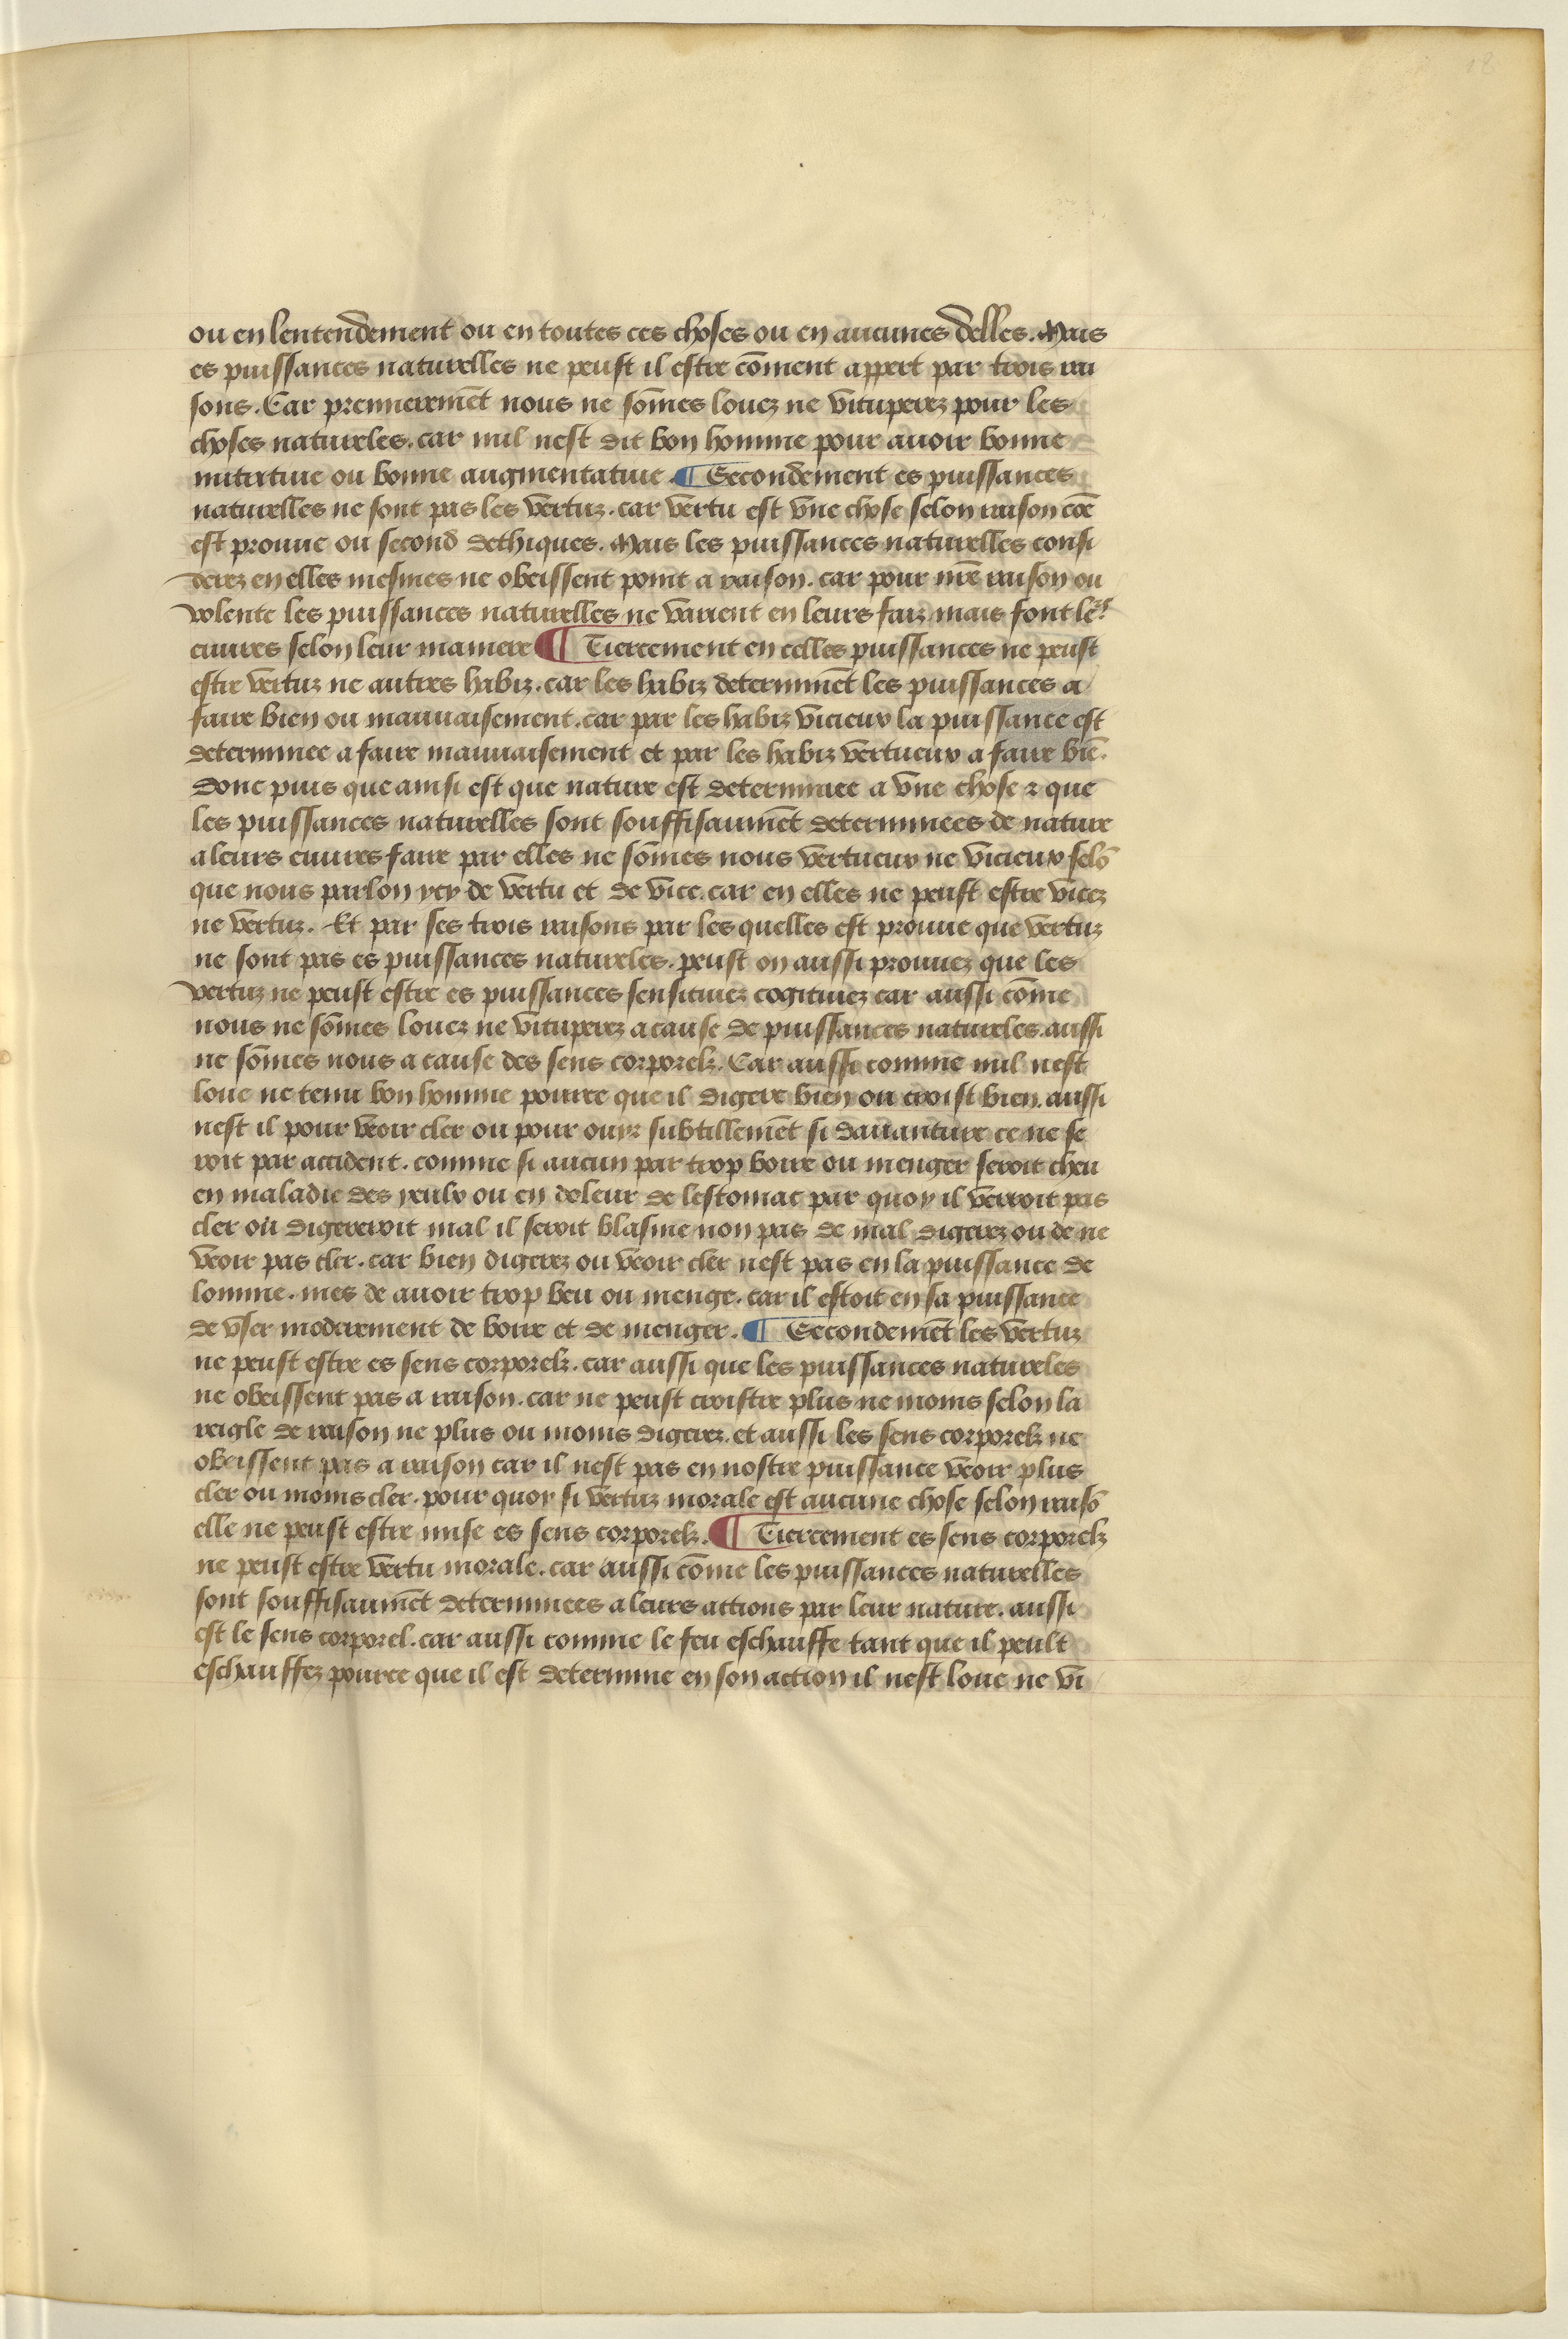 18
ou en lentendement ou en toutes ces choses ou en aucunes delles. Mais
es puissances naturelles ne peust il estre cōment appert par trois rai
sons. Car premieremēt nous ne sōmes louez ne vituperez pour les
choses natureles. car nul nest dit bon homme pour auoir bonne
nutritiue ou bonne augmentatiue. ¶ Secondement es puissances
naturelles ne sont pas les vertuz. car vertu est vne chose selon raison cōe
est prouue ou second dethiques. Mais les puissances naturelles consi
derez en elles mesmes ne obeissent point a raison. car pour nr̄e raison ou
volente les puissances naturelles ne varient en leurs faiz mais font le's
euures selon leur maniere ¶ Tiercement en celles puissances ne peust
estre vertuz ne autres habiz. car les habiz determinēt les puissances a
faire bien ou mauuaisement. car par les habiz vicieux la puissance est
determinee a faire mauuaisement et par les habiz vertueux a faire biē.
Donc puis que ainsi est que nature est determinee a vne chose ⁊ que
les puissances naturelles sont souffisaumēt determinees de nature
a leurs euures faire par elles ne sōmes nous vertueux ne vicieux selō
que nous parlon ycy de vertu et de vice. car en elles ne peust estre vicez
ne vertuz. Et par ses trois raisons par les quelles est prouue que vertuz
ne sont pas es puissances natureles. peust on aussi prouuez que les
vertuz ne peust estre es puissances sensitiuez cogitiuez car aussi cōme
nous ne sōmes louez ne vituperez a cause de puissances natureles. aussi
ne sōmes nous a cause des sens corporelz. Car aussi comme nul nest
loue ne tenu bon homme pource que il digere bien ou croist bien. aussi
nest il pour veoir cler ou pour ouyr subtillemēt si dauanture ce ne se
roit par accident. comme si aucun par trop boire ou menger seroit cheu
en maladie des yeulx ou en doleur de lestomac par quoy il verroit pas
cler ou digereroit mal il seroit blasme non pas de mal digerez ou de ne
veoir pas cler. car bien digerez ou veoir cler nest pas en la puissance de
lomme. mes de auoir trop beu ou menge. car il estoit en sa puissance
de vser moderement de boire et de menger. ¶ Secondemēt les vertuz
ne peust estre es sens corporelz. car aussi que les puissances natureles
ne obeissent pas a raison. car ne peust croistre plus ne moins selon la
reigle de raison ne plus ou moins digerez. et aussi les sens corporelz ne
obeissent pas a raison car il nest pas en nostre puissance veoir plus
cler ou moins cler. pour quoy si vertuz morale est aucune chose selon raisō
elle ne peust estre mise es sens corporelz. ¶ Tiercement es sens corporelz
ne peust estre vertu morale. car aussi cōme les puissances naturelles
sont souffisaumēt determinees a leurs actions par leur nature. aussi
est le sens corporel. car aussi comme le feu eschauffe tant que il peult
eschauffez pource que il est determine en son action il nest loue ne vi